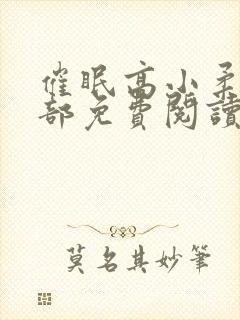 催眠高小柔
部免費閱讀
莫名其妙筆